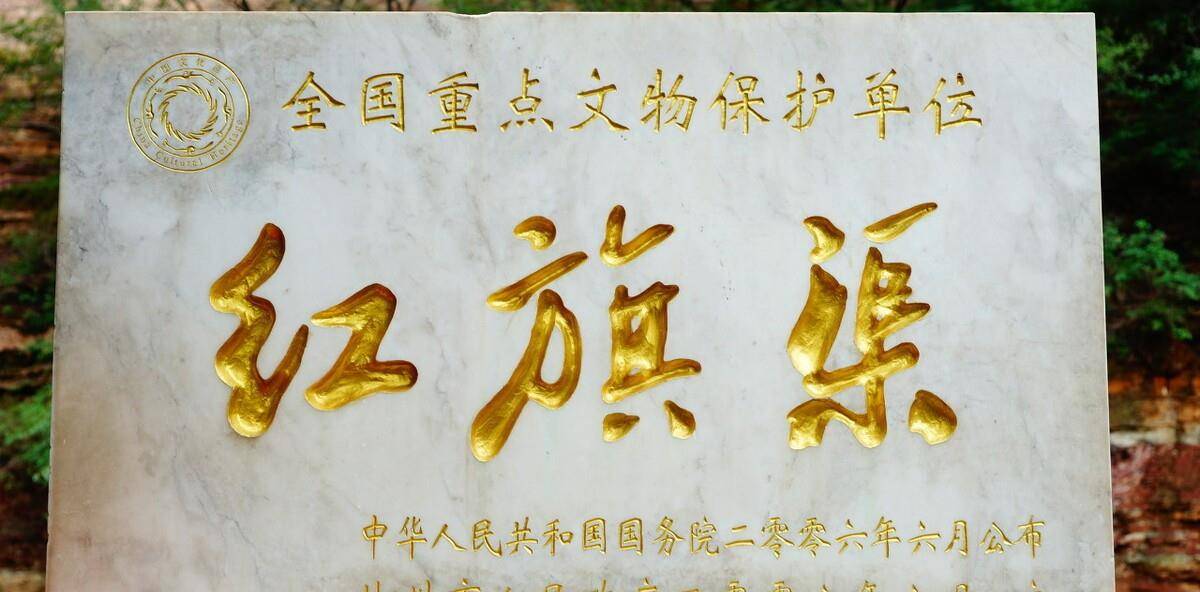 中国文化遗产
China Cultural Heritage
全国重点文物保护单位
红旗渠
中华人民共和国国务院二零零六年六月公布